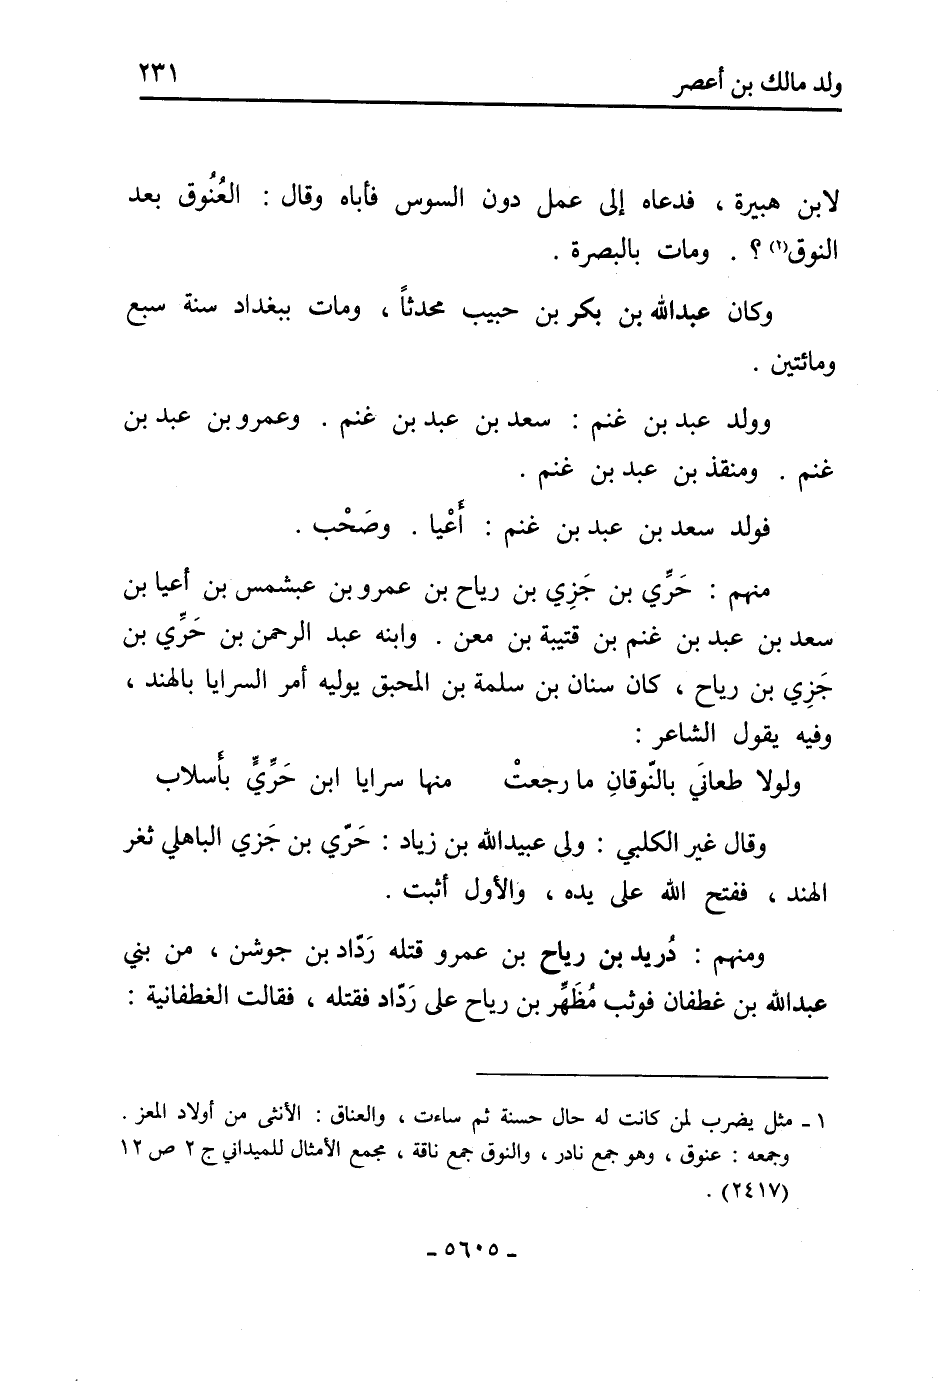 ولد مالك بن أعصر ٢٣١
لابن هبيرة ، فدعاه إلى عمل دون السوس فأباه وقال : العُنُوق بعد
النوق(١) ؟ . ومات بالبصرة .
وكان عبدالله بن بكر بن حبيب محدثاً ، ومات ببغداد سنة سبع
ومائتين .
وولد عبد بن غنم : سعد بن عبد بن غنم . وعمرو بن عبد بن
غنم . ومنقذ بن عبد بن غنم .
فولد سعد بن عبد بن غنم : أَعْيا . وصَحْب .
منهم : حَرِّي بن جَزِي بن رياح بن عمرو بن عبشمس بن أعيا بن
سعد بن عبد بن غنم بن قتيبة بن معن . وابنه عبد الرحمن بن حَرِّي بن
جَزِي بن رياح ، كان سنان بن سلمة بن المحبق يوليه أمر السرايا بالهند ،
وفيه يقول الشاعر :
ولولا طعانَي بالنّوقانِ ما رجعتْ منها سرايا ابن حَرِّيٍّ بأَسلاب
وقال غير الكلبي : ولى عبيدالله بن زياد : حَرّي بن جَزي الباهلي ثغر
الهند ، ففتح الله على يده ، والأول أثبت .
ومنهم : دُريد بن رياح بن عمرو قتله رَدّاد بن جوشن ، من بني
عبدالله بن غطفان فوثب مُظَهِّر بن رياح على رَدّاد فقتله ، فقالت الغطفانية :
١ - مثل يضرب لمن كانت له حال حسنة ثم ساءت ، والعناق : الأنثى من أولاد المعز .
وجمعه : عنوق ، وهو جمع نادر ، والنوق جمع ناقة ، مجمع الأمثال للميداني ج ٢ ص ١٢
(٢٤١٧) .
- ٥٦٠٥ -